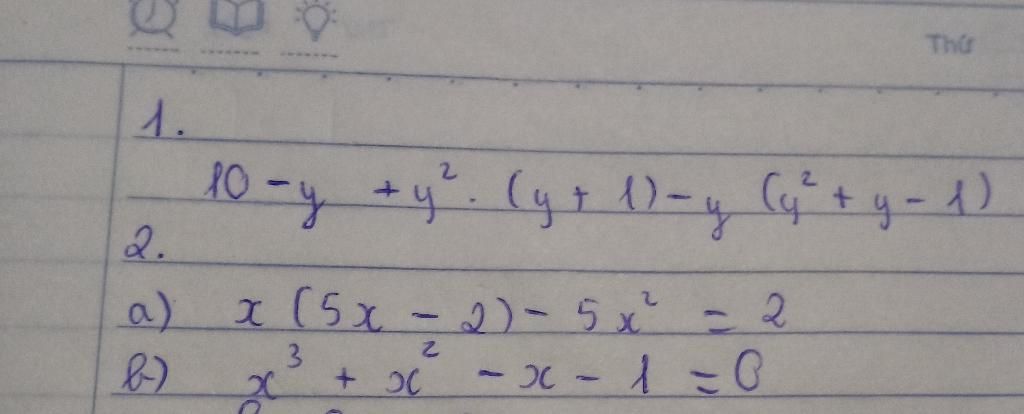 Thứ
1.
10 - y + y² . (y + 1) - y (y² + y - 1)
2.
a) x (5x - 2) - 5x² = 2
b) x³ + x² - x - 1 = 0